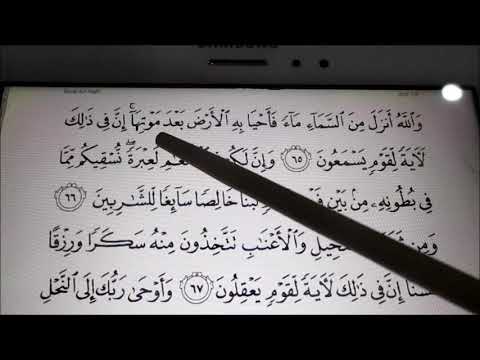 SAMSUNG
وَٱللَّهُ أَنزَلَ مِنَ ٱلسَّمَآءِ مَآءً فَأَحْيَا بِهِ ٱلْأَرْضَ بَعْدَ مَوْتِهَآۚ إِنَّ فِى ذَٰلِكَ
لَـَٔايَةً لِّقَوْمٍ يَسْمَعُونَ ٦٥ وَإِنَّ لَعِبْرَةًۖ نُّسْقِيكُم مِّمَّا
فِى بُطُونِهِۦ مِنۢ بَيْنِ لَّبَنًا خَالِصًا سَآئِغًا لِّلشَّـٰرِبِينَ ٦٦
وَمِن وَٱلْأَعْنَـٰبِ تَتَّخِذُونَ مِنْهُ سَكَرًا وَرِزْقًا
إِنَّ فِى ذَٰلِكَ لَـَٔايَةً لِّقَوْمٍ يَعْقِلُونَ ٦٧ وَأَوْحَىٰ رَبُّكَ إِلَى ٱلنَّحْلِ